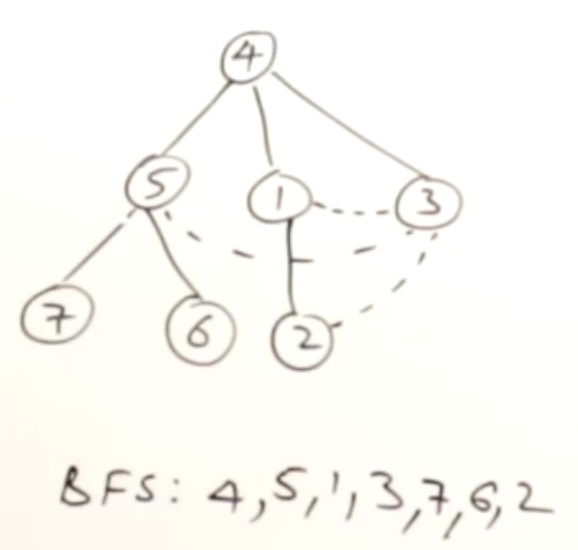 4
5 1 3
7 6 2
BFS: 4,5,1,3,7,6,2